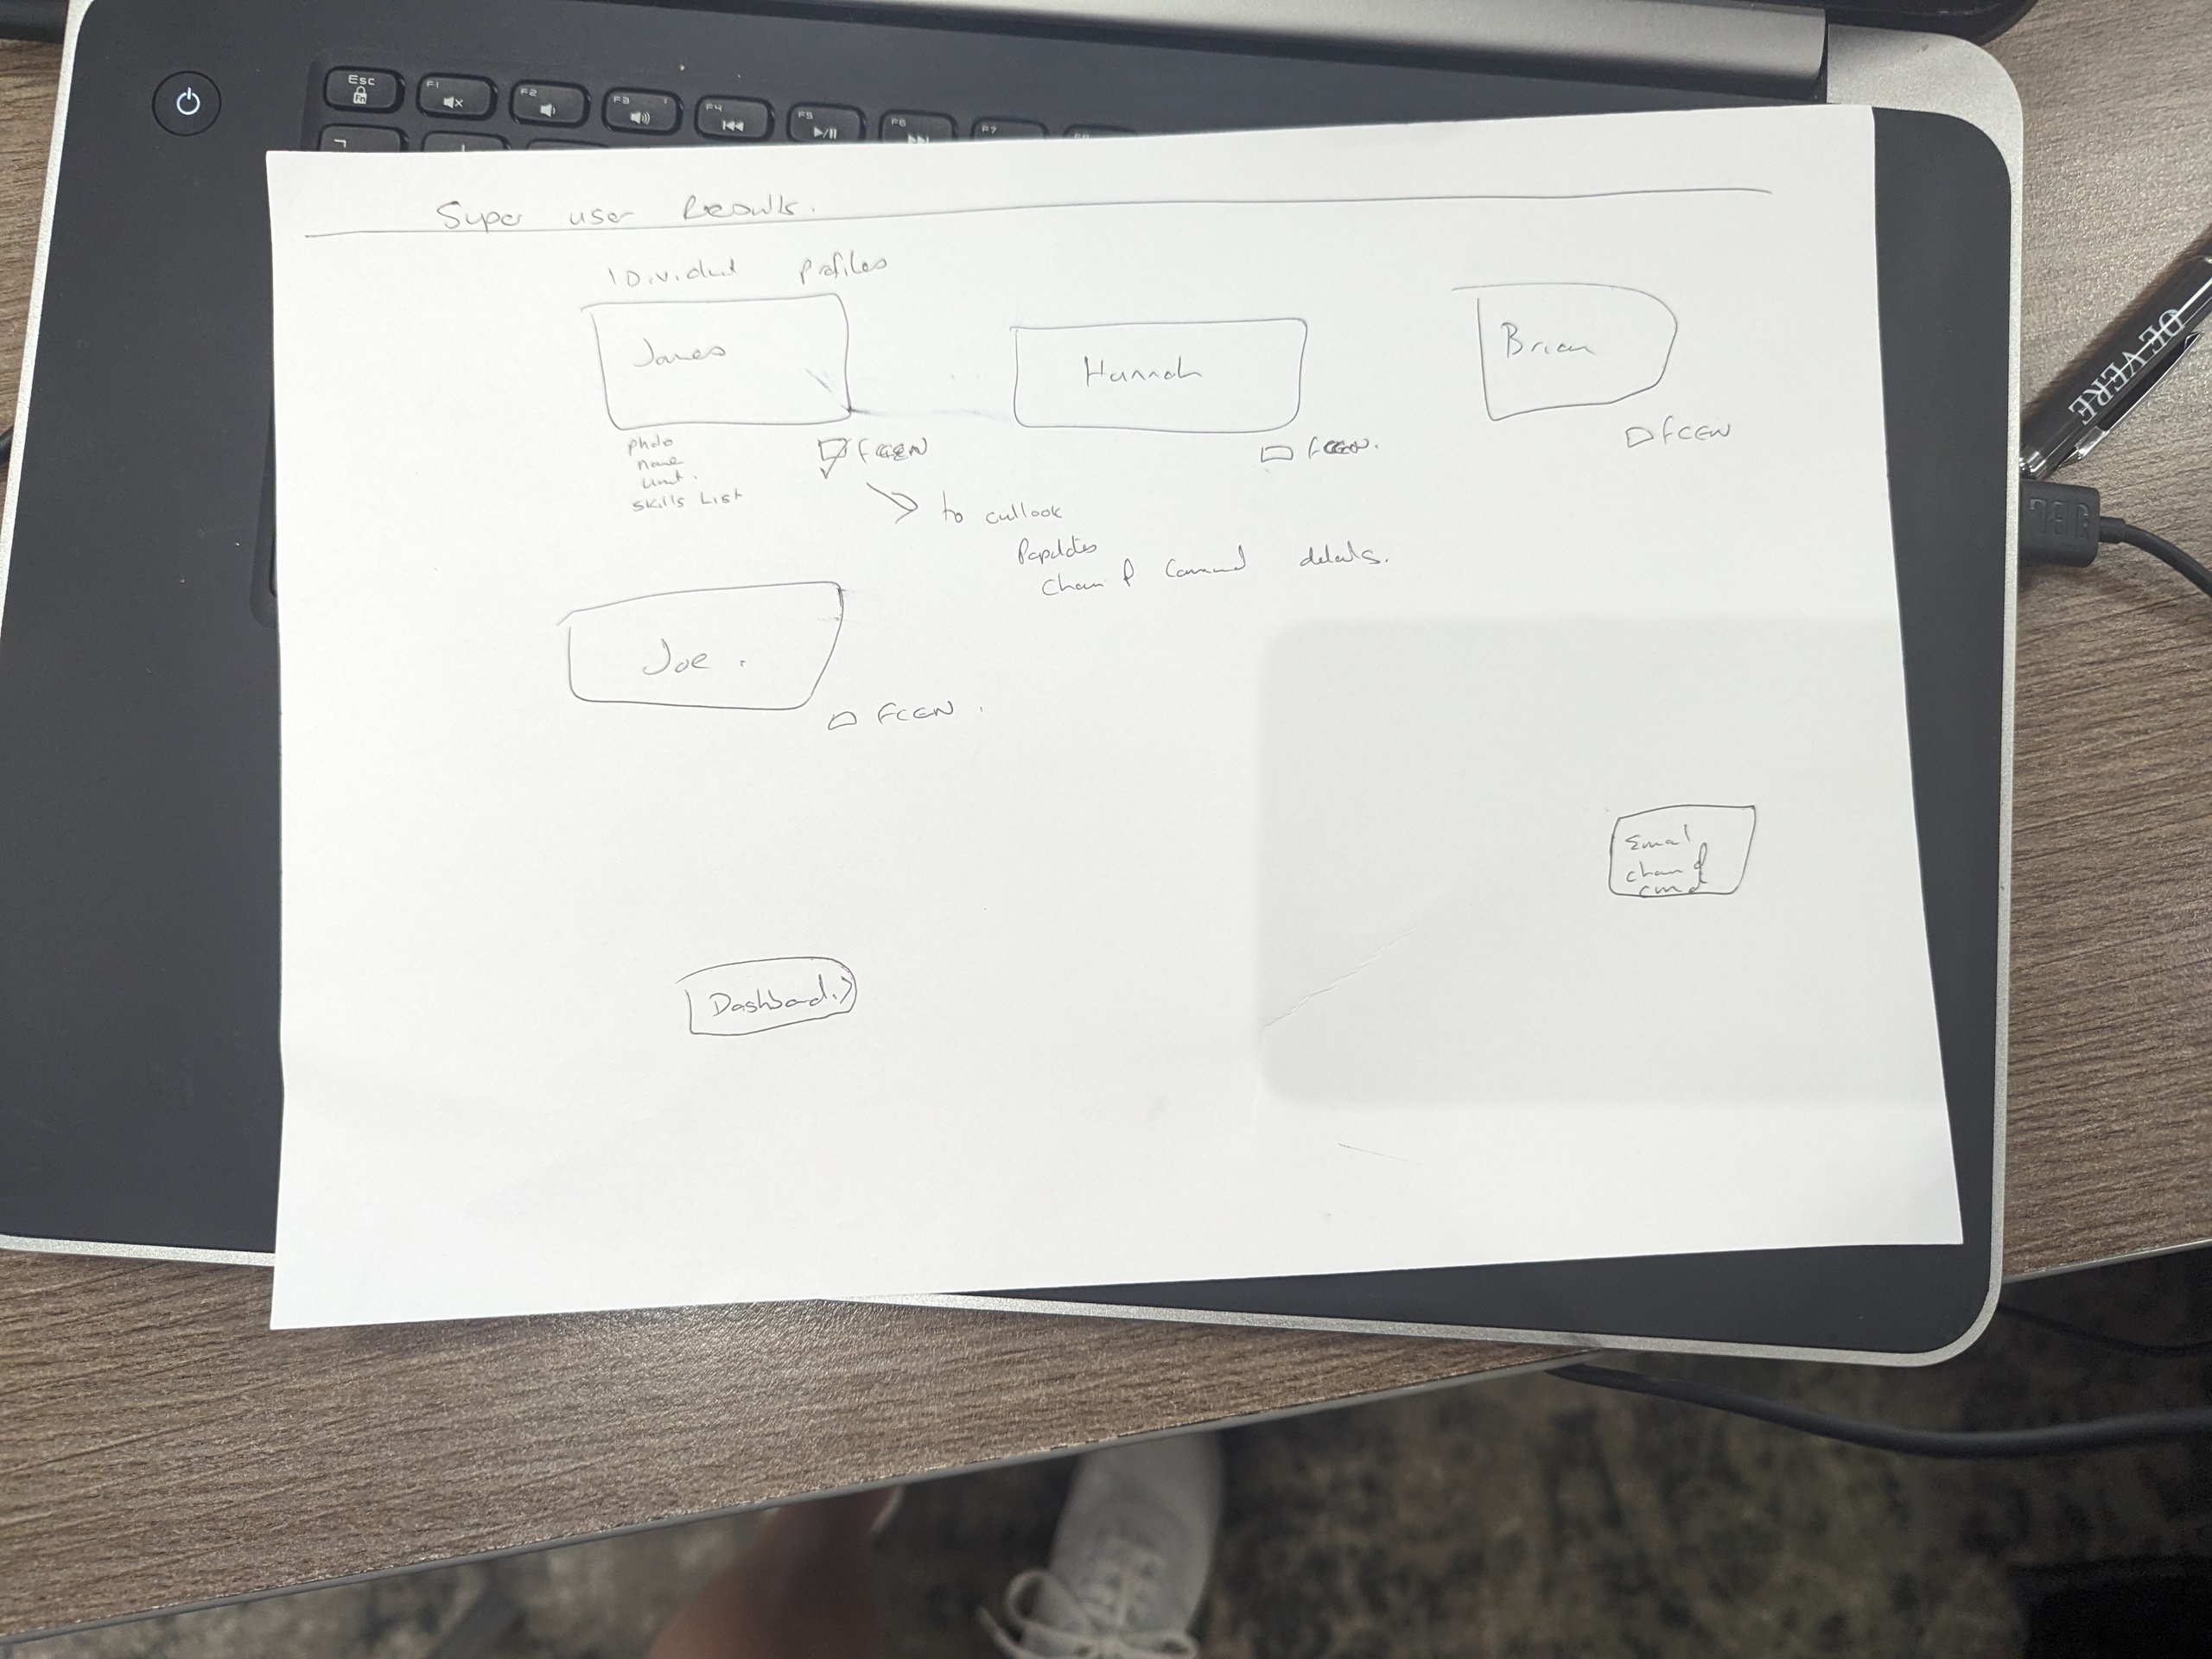 Esc
Fn
F1
F2
F3
F4
F5
F6
F7
Super user Results.
IDividual profiles
James
Hannah
Brian
photo
name
unit.
skills List
FCEN
FCEN.
FCEN
to outlook
Populates
chain of Command details.
Joe.
FCEN.
Email
chain of
cmd
Dashboard.
DE VERE